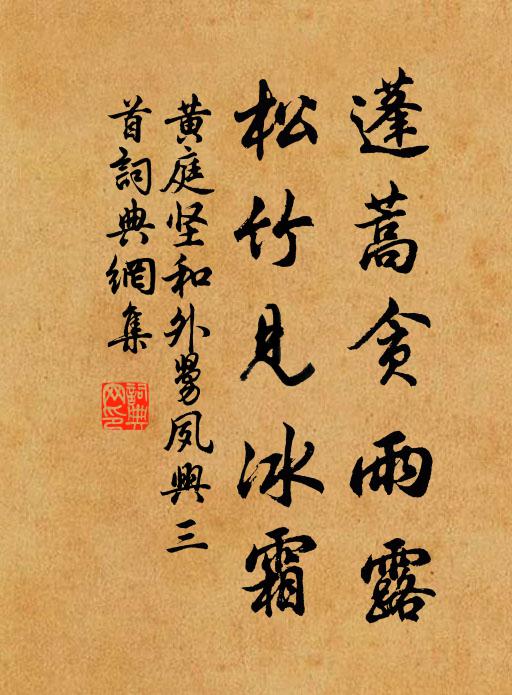 蓬蒿贪雨露
松竹见冰霜
黄庭坚和外舅夙興三
首詞典網集
詞典网印